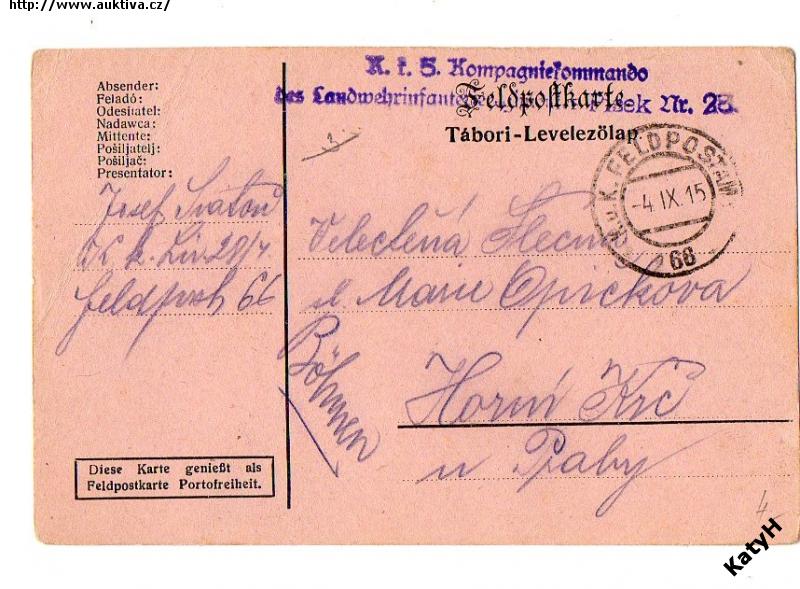 http://www.auktiva.cz/
K. k. 5. Kompagniekommando
des Landwehrinfanterie Pisek Nr. 28.
Feldpostkarte.
Tábori-Levelezölap.
Absender:
Feladó:
Odesilatel:
Nadawca:
Mittente:
Pošiljatelj:
Pošiljač:
Presentator:
K. u. K. FELDPOSTAMT
-4. IX. 15
66
Josef
K. k. 28/
Feldpost 66
Velectěná Slečna
Marie Opičkova
Böhmen
Horní Krč
u Prahy
Diese Karte genießt als
Feldpostkarte Portofreiheit.
4
KatyH